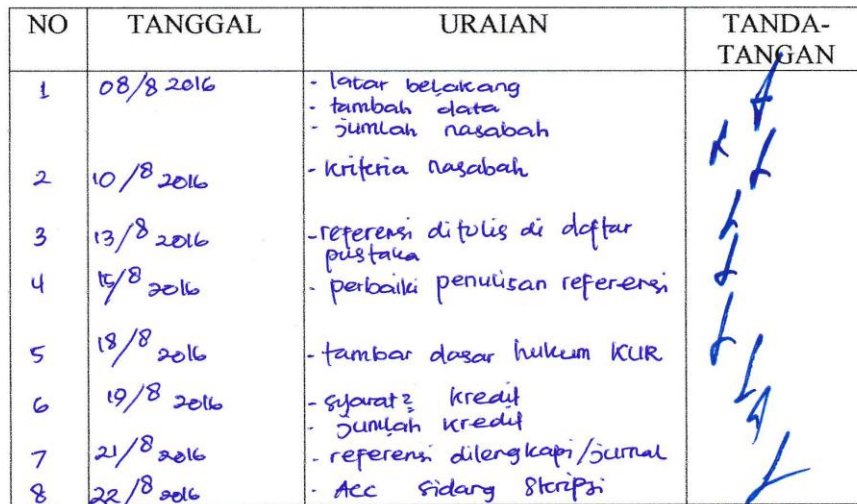 NO TANGGAL URAIAN TANDA-
TANGAN
1 08/8 2016 - latar belakang
- tambah data
- jumlah nasabah
2 10/8 2016 - kriteria nasabah
3 13/8 2016 - referensi ditulis di daftar
pustaka
4 15/8 2016 - perbaiki penulisan referensi
5 18/8 2016 - tambar dasar hukum KUR
6 19/8 2016 - syarat2 kredit
- jumlah kredit
7 21/8 2016 - referensi dilengkapi/jurnal
8 22/8 2016 - Acc sidang skripsi